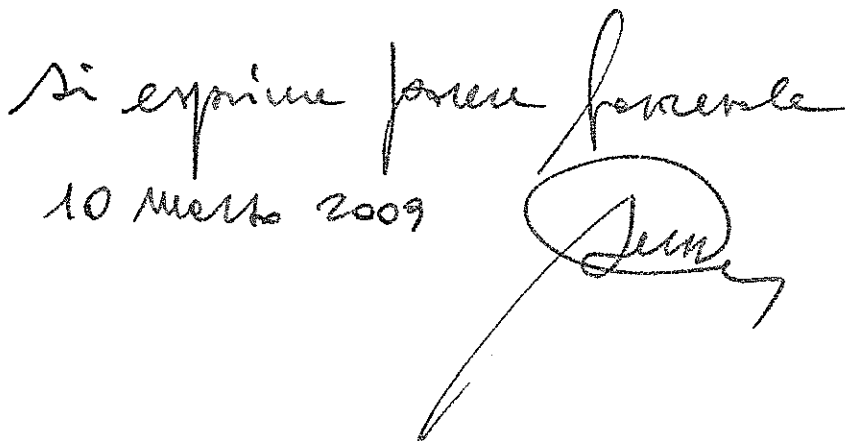 Si esprime parere favorevole
10 Marzo 2009